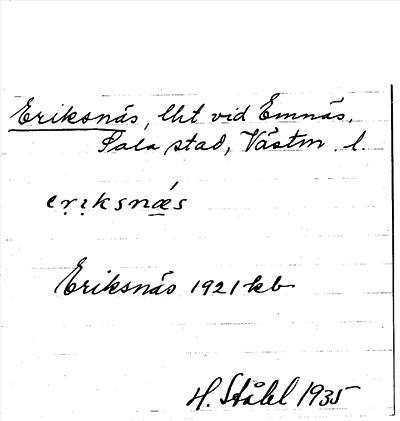 Eriksnäs, lht vid Emnäs,
Sala stad, Västm. l.
ęrịksnǽs
Eriksnäs 1921 kb
H. Ståhl 1935